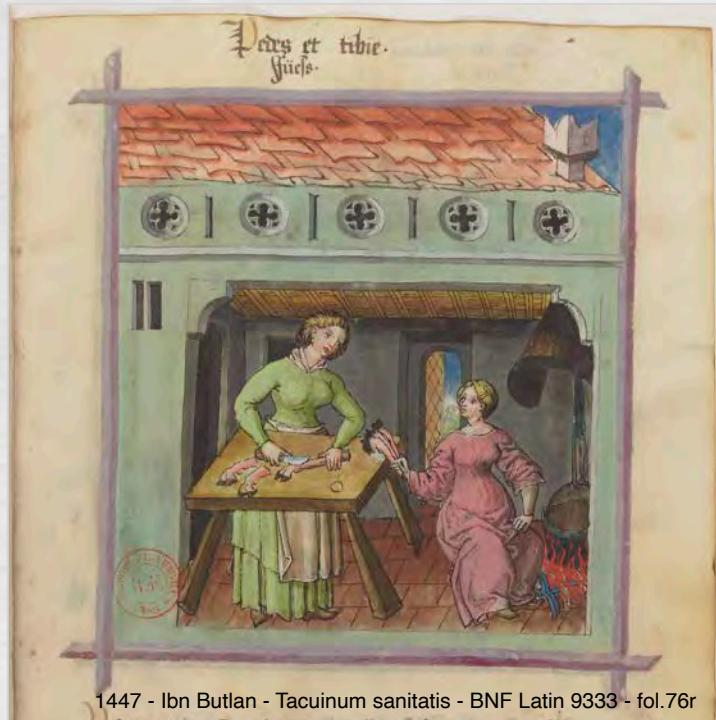 Pedes et tibie.
Füess.
1447 - Ibn Butlan - Tacuinum sanitatis - BNF Latin 9333 - fol.76r